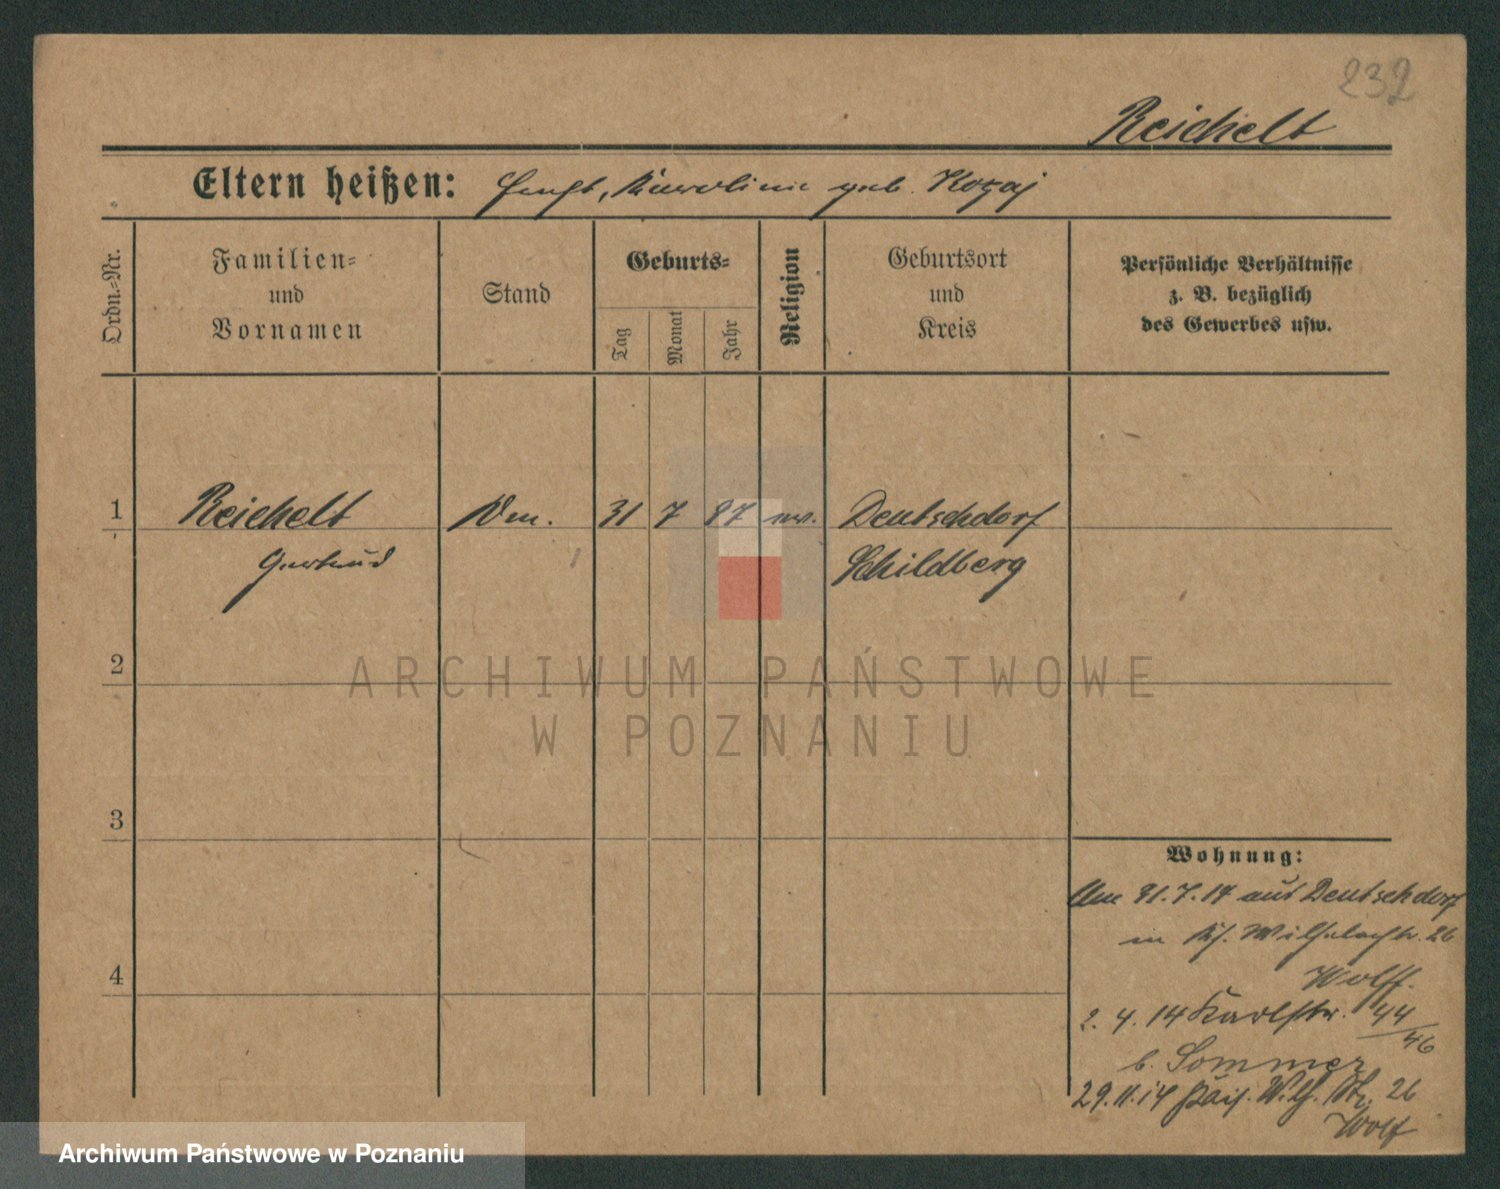 232
Reichelt
Eltern heißen: Ernst, Karoline geb. Kozaj
Ordn.-Nr.
Familien-
und
Vornamen
Stand
Geburts-
Tag
Monat
Jahr
Religion
Geburtsort
und
Kreis
Persönliche Verhältnisse
z. B. bezüglich
des Gewerbes usw.
1
Reichelt 31 7 87 ev. Deutschdorf
Gertrud Schildberg
2
ARCHIWUM PAŃSTWOWE
W POZNANIU
3
Wohnung:
Am 31.7.14 aus Deutschdorf
in 26
Wolff.
2.4.14 Karlstr. 44/46
b. Sommer
29.11.14 Kais. Wilh. Str. 26
Wolf
4
Archiwum Państwowe w Poznaniu